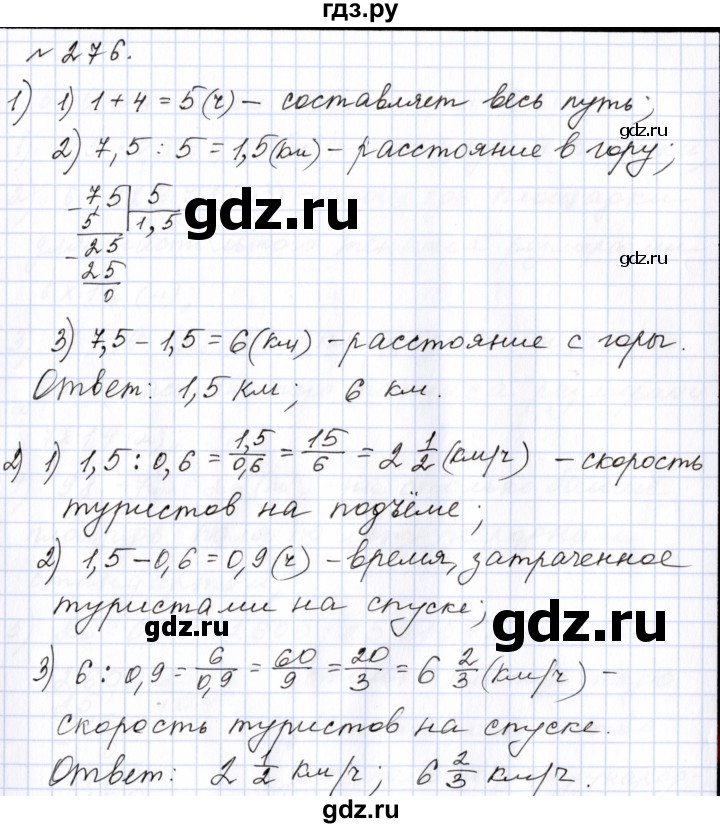 гдз.ру
№ 276.
1) 1) 1 + 4 = 5 (ч) – составляет весь путь;
gdz.ru
2) 7,5 : 5 = 1,5 (км) – расстояние в гору;
gdz.ru
75 | 5
5 | 1,5
– 25
25
0
gdz.ru
gdz.ru
3) 7,5 – 1,5 = 6 (км) – расстояние с горы.
Ответ: 1,5 км; 6 км.
2) 1) 1,5 : 0,6 = 1,5/0,6 = 15/6 = 2 1/2 (км/ч) – скорость
туристов на подъёме;
2) 1,5 – 0,6 = 0,9 (ч) – время, затраченное
туристами на спуске;
gdz.ru
gdz.ru
3) 6 : 0,9 = 6/0,9 = 60/9 = 20/3 = 6 2/3 (км/ч) –
скорость туристов на спуске.
Ответ: 2 1/2 км/ч; 6 2/3 км/ч.
gdz.ru
gdz.ru